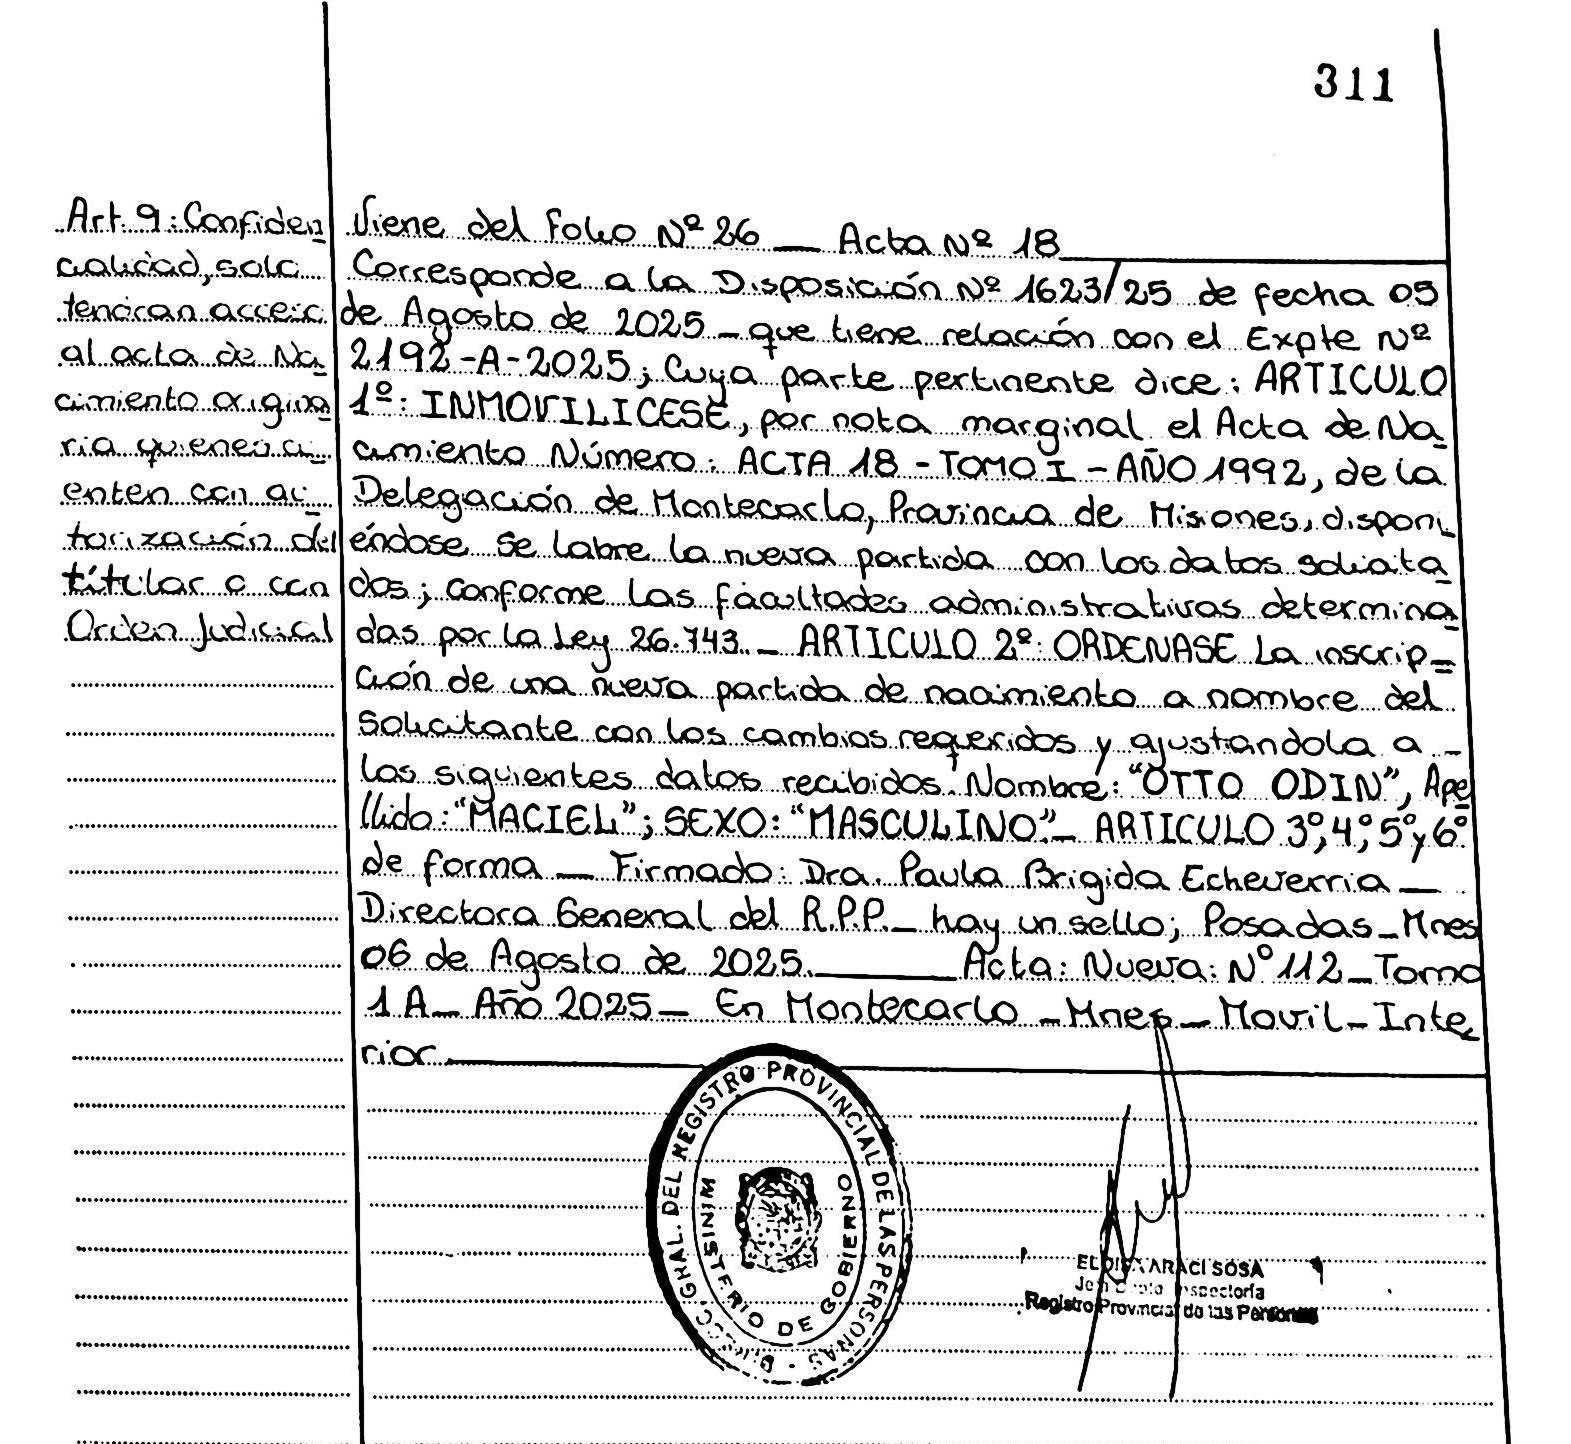 311
Art. 9: Confiden
cialidad, solo
tendran acceso
al acta de Na
cimiento origina
ria quienes cu
enten con au
torización del
títular o con
Orden Judicial
Viene del Folio Nº 26 — Acta Nº 18
Corresponde a la Disposición Nº 1623/25 de fecha 05
de Agosto de 2025 - que tiene relación con el Expte Nº
2192-A-2025; Cuya parte pertinente dice: ARTICULO
1º: INMOVILICESE, por nota marginal el Acta de Na
cimiento Número: ACTA 18 - TOMO I - AÑO 1992, de la
Delegación de Montecarlo, Provincia de Misiones, disponi
éndose se labre la nueva partida con los datos solicita
dos; conforme las facultades administrativas determina
das por la Ley 26.743. - ARTICULO 2º: ORDENASE La inscrip=
ción de una nueva partida de nacimiento a nombre del
Solicitante con los cambios requeridos y ajustandola a -
los siguientes datos recibidos. Nombre: "OTTO ODIN", Ape
llido: "MACIEL"; SEXO: "MASCULINO". - ARTICULO 3º, 4º, 5º y 6º
de forma — Firmado: Dra. Paula Brigida Echeverria —
Directora General del R.P.P. - hay un sello; Posadas - Mnes
06 de Agosto de 2025. Acta: Nueva: Nº 112 - Tomo
1 A - Año 2025 - En Montecarlo - Mnes - Movil - Inte
rior
GRAL. DEL REGISTRO PROVINCIAL DE LAS PERSONAS
MINISTERIO DE GOBIERNO
ARACI SOSA
Inspectoría
Registro Provincial de las Personas